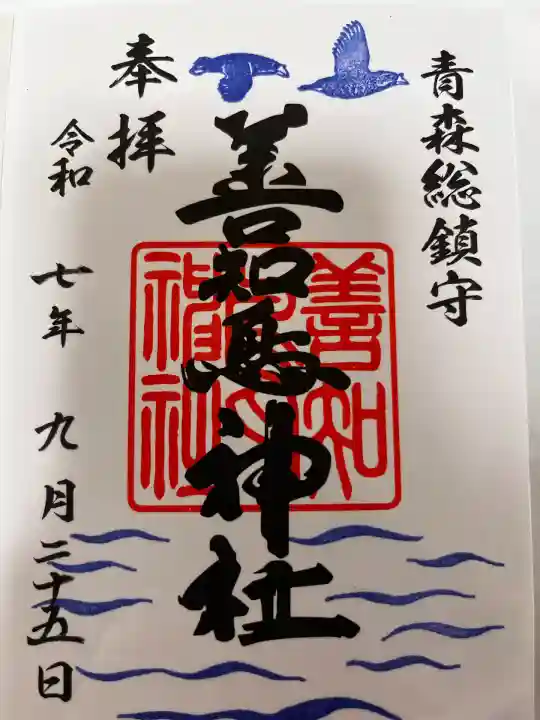 青森総鎮守
善知鳥神社
善知鳥神社
奉拝
令和 七年 九月二十五日